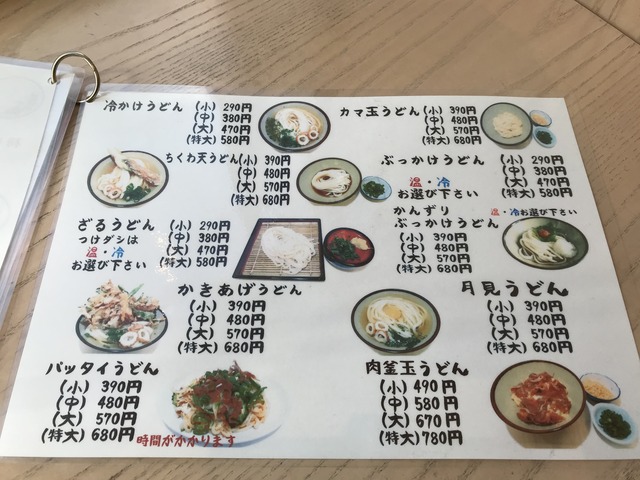 冷かけうどん (小) 290円
(中) 380円
(大) 470円
(特大) 580円
カマ玉うどん (小) 390円
(中) 480円
(大) 570円
(特大) 680円
ちくわ天うどん (小) 390円
(中) 480円
(大) 570円
(特大) 680円
ぶっかけうどん (小) 290円
温・冷 (中) 380円
お選び下さい (大) 470円
(特大) 580円
ざるうどん (小) 290円
つけダシは (中) 380円
温・冷 (大) 470円
お選び下さい (特大) 580円
かんずり 温・冷お選び下さい
ぶっかけうどん
(小) 390円
(中) 480円
(大) 570円
(特大) 680円
かきあげうどん
(小) 390円
(中) 480円
(大) 570円
(特大) 680円
月見うどん
(小) 390円
(中) 480円
(大) 570円
(特大) 680円
パッタイうどん
(小) 390円
(中) 480円
(大) 570円
(特大) 680円 時間がかかります
肉釜玉うどん
(小) 490円
(中) 580円
(大) 670円
(特大) 780円